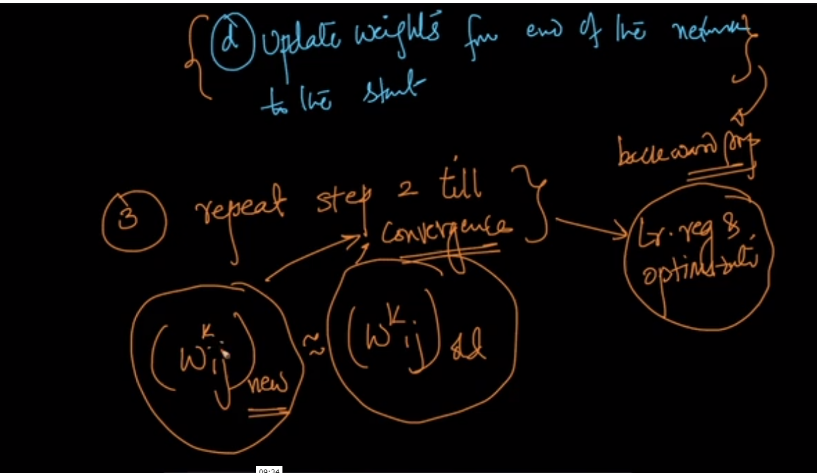 d Update weights from end of the network
to the start
backward prop
3 repeat step 2 till
convergence
Lr. reg &
optimization
(W^k_ij)new ≈ (W^k_ij)old
09:24